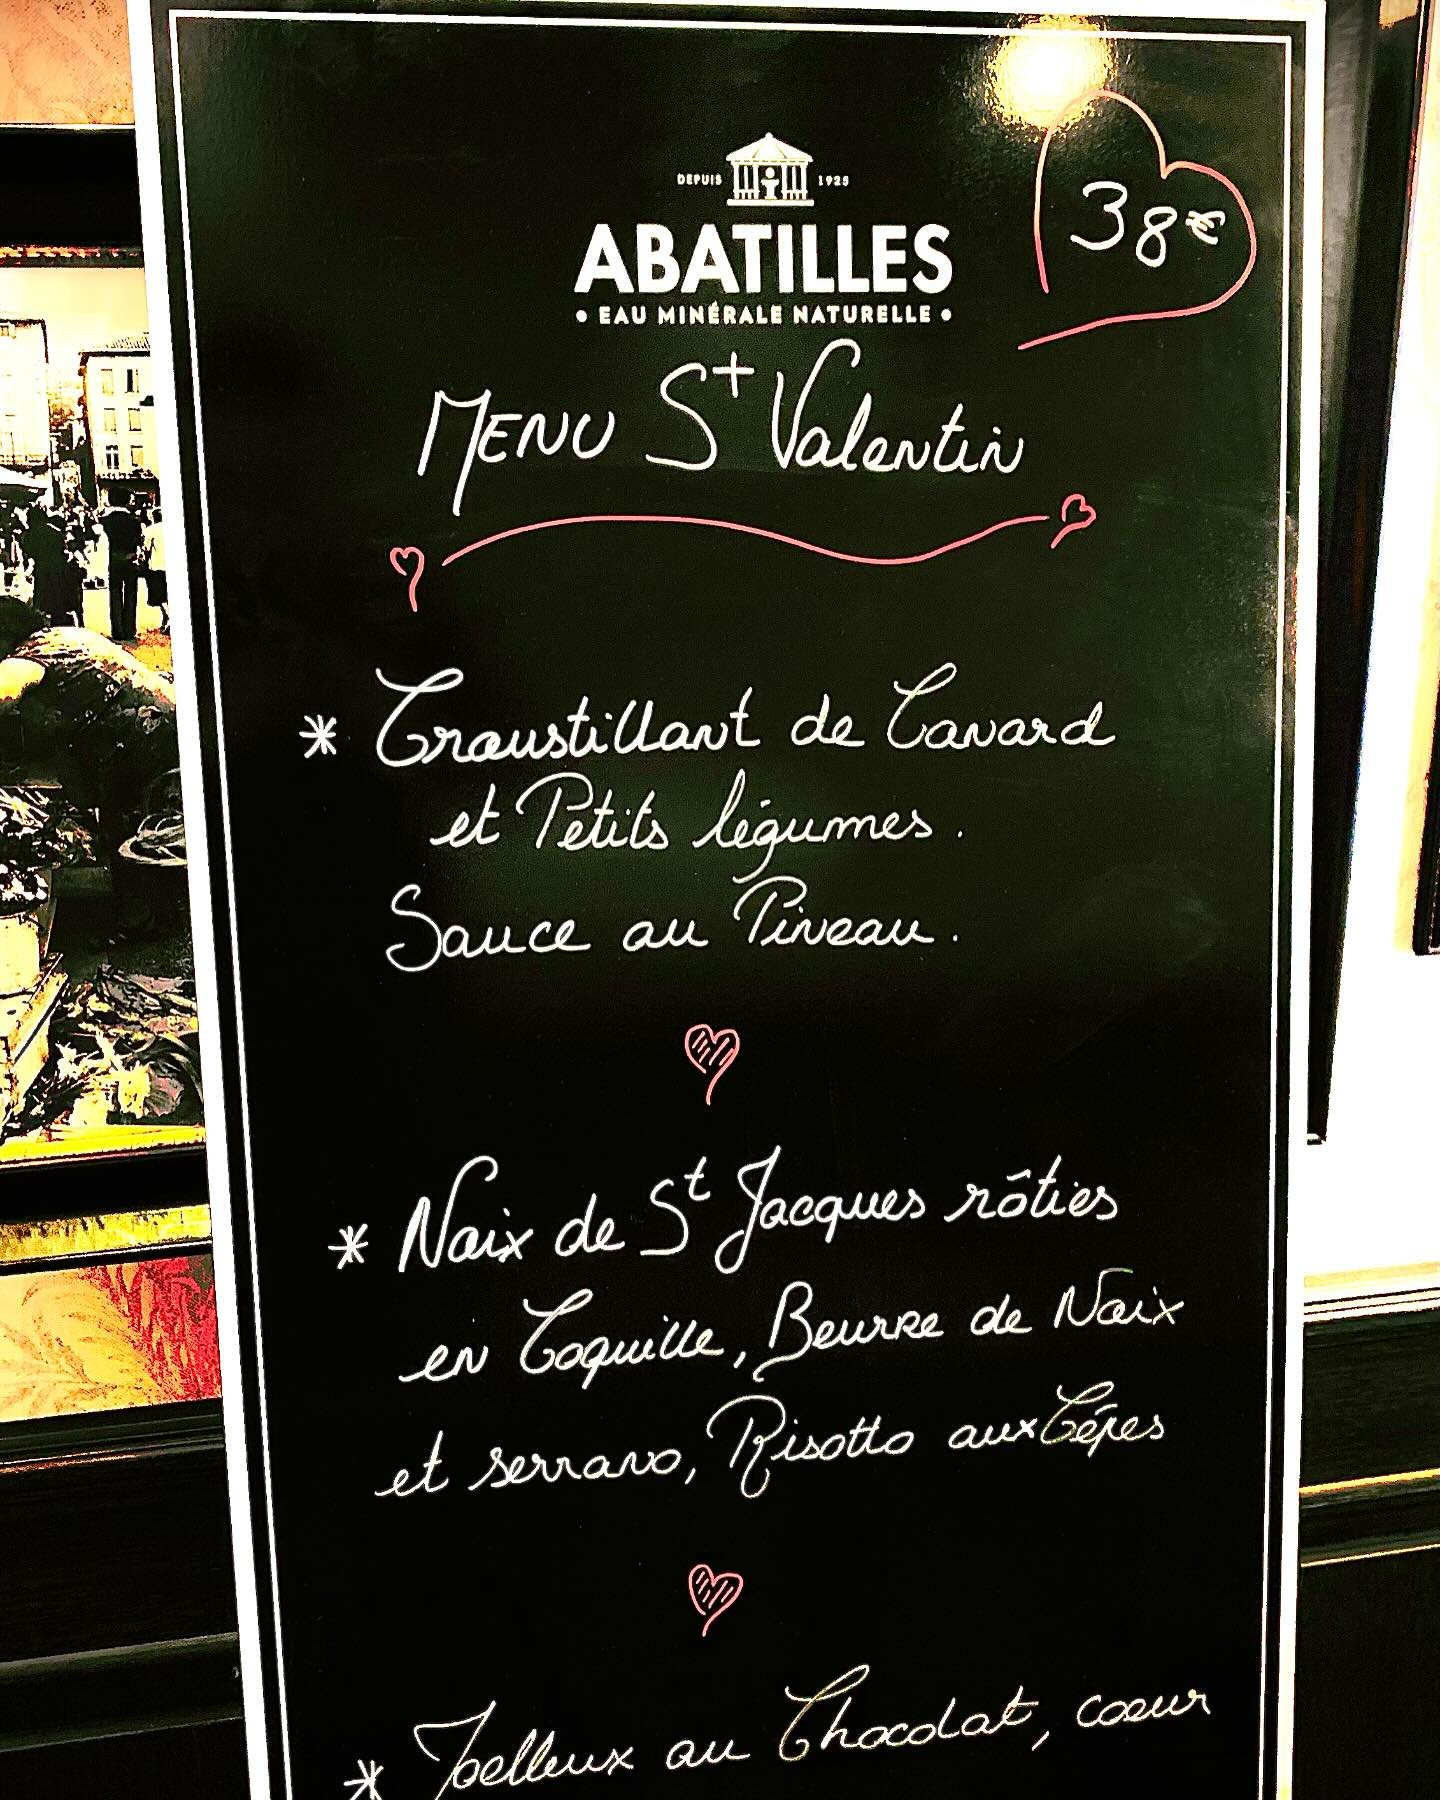 DEPUIS 1925
ABATILLES
• EAU MINÉRALE NATURELLE •
38€
MENU St Valentin
* Croustillant de Canard
et Petits légumes.
Sauce au Pineau.
* Noix de St Jacques rôties
en Coquille, Beurre de Noix
et serrano, Risotto aux Cêpes
* Moelleux au Chocolat, coeur